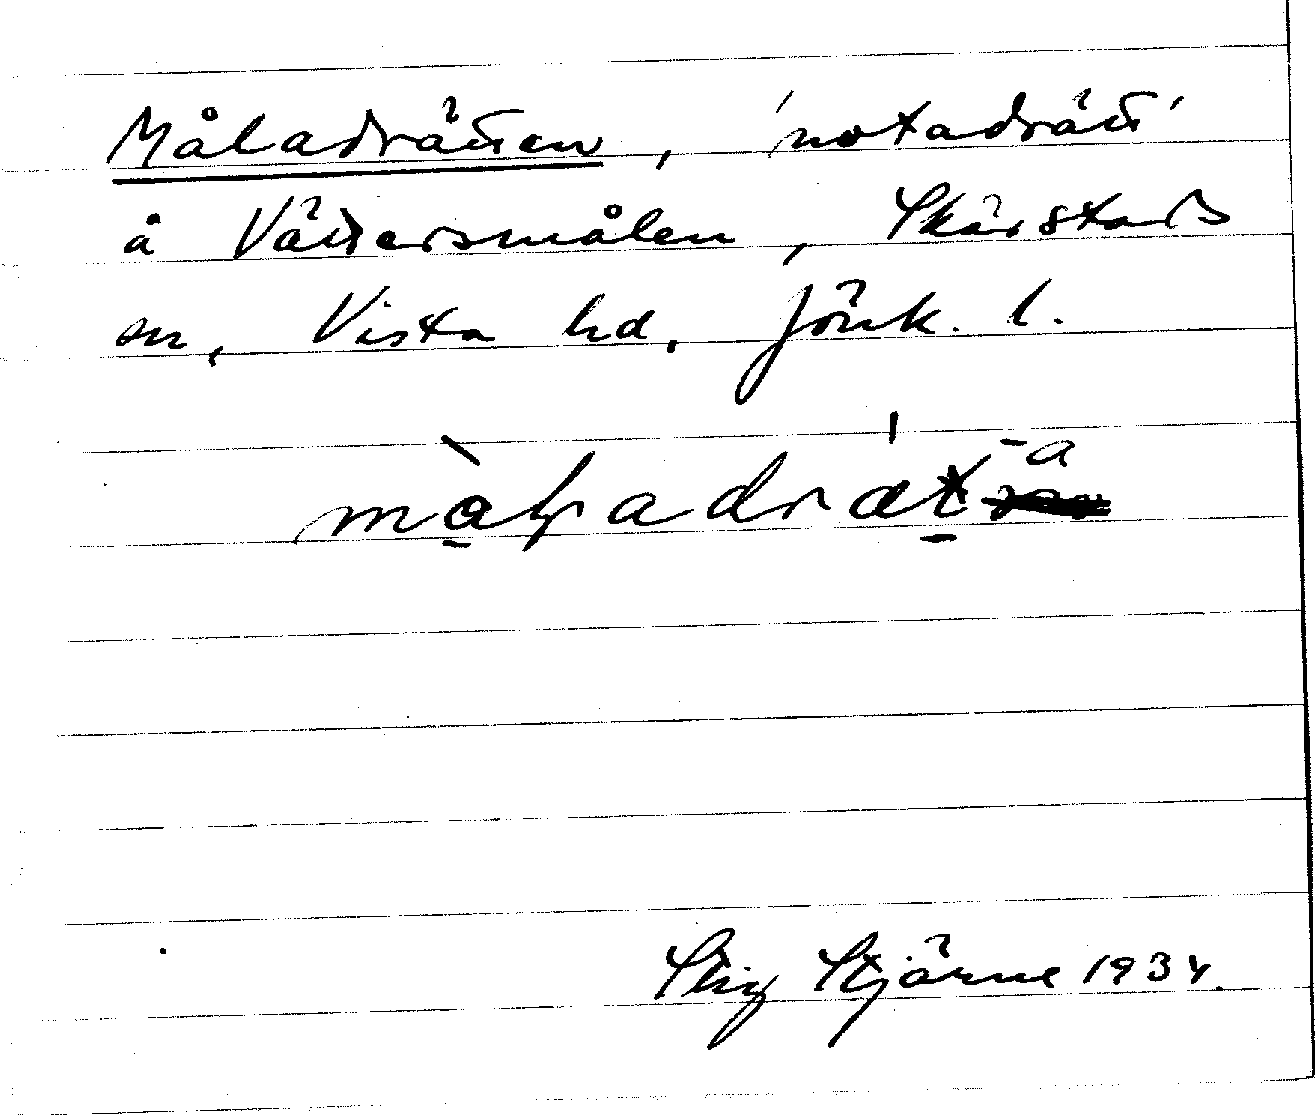 Måladrätten, 'notadrätt'
å Vättersmålen, Skärstads
sn, Vista hd, Jönk. l.
Stig Stjärne 1934.